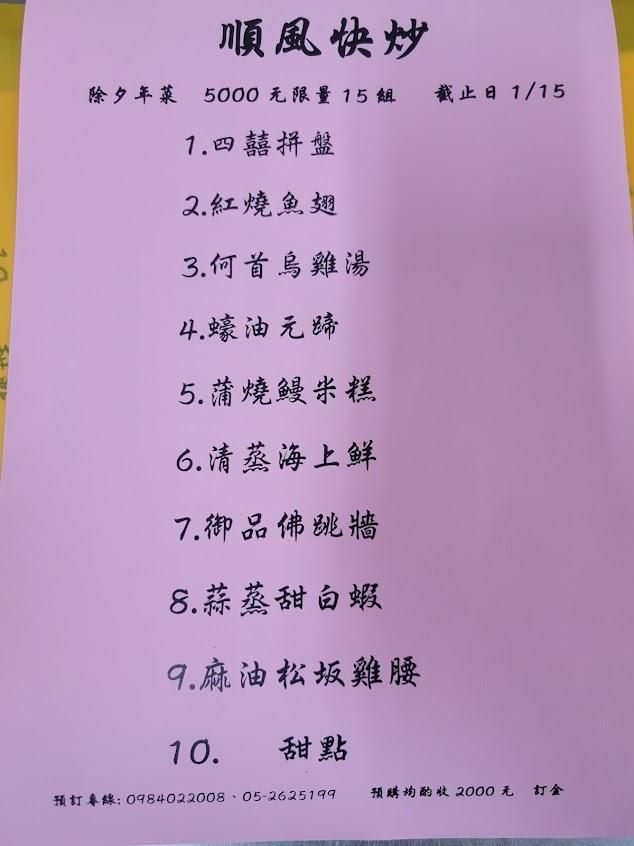 順風快炒
除夕年菜 5000元限量15組 截止日1/15
1.四囍拼盤
2.紅燒魚翅
3.何首烏雞湯
4.蠔油元蹄
5.蒲燒鰻米糕
6.清蒸海上鮮
7.御品佛跳牆
8.蒜蒸甜白蝦
9.麻油松坂雞腰
10. 甜點
預訂專線:0984022008、05-2625199 預購均酌收2000元 訂金